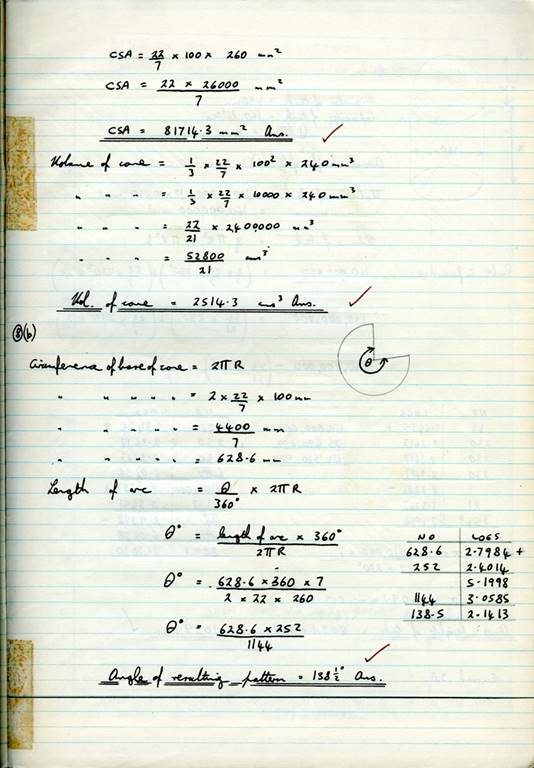 CSA = 22/7 × 100 × 260 mm²
CSA = 22 × 26000 / 7 mm²
CSA = 81714.3 mm² Ans. ✓
Volume of cone = 1/3 × 22/7 × 100² × 240 mm³
" " " = 1/3 × 22/7 × 10000 × 240 mm³
" " " = 22/21 × 2400000 mm³
" " " = 52800/21 cm³
Vol. of cone = 2514.3 cms³ Ans. ✓
⑧(b)
θ
Circumference of base of cone = 2πR
" " " " " = 2 × 22/7 × 100 mm
" " " " " = 4400/7 mm
" " " " " = 628.6 mm
Length of arc = θ/360° × 2πR
θ° = length of arc × 360° / 2πR
θ° = 628.6 × 360 × 7 / 2 × 22 × 260
θ° = 628.6 × 252 / 1144
NO LOGS
628.6 2.7984 +
252 2.4014
5.1998
1144 3.0585
138.5 2.1413
Angle of resulting pattern = 138½° Ans. ✓